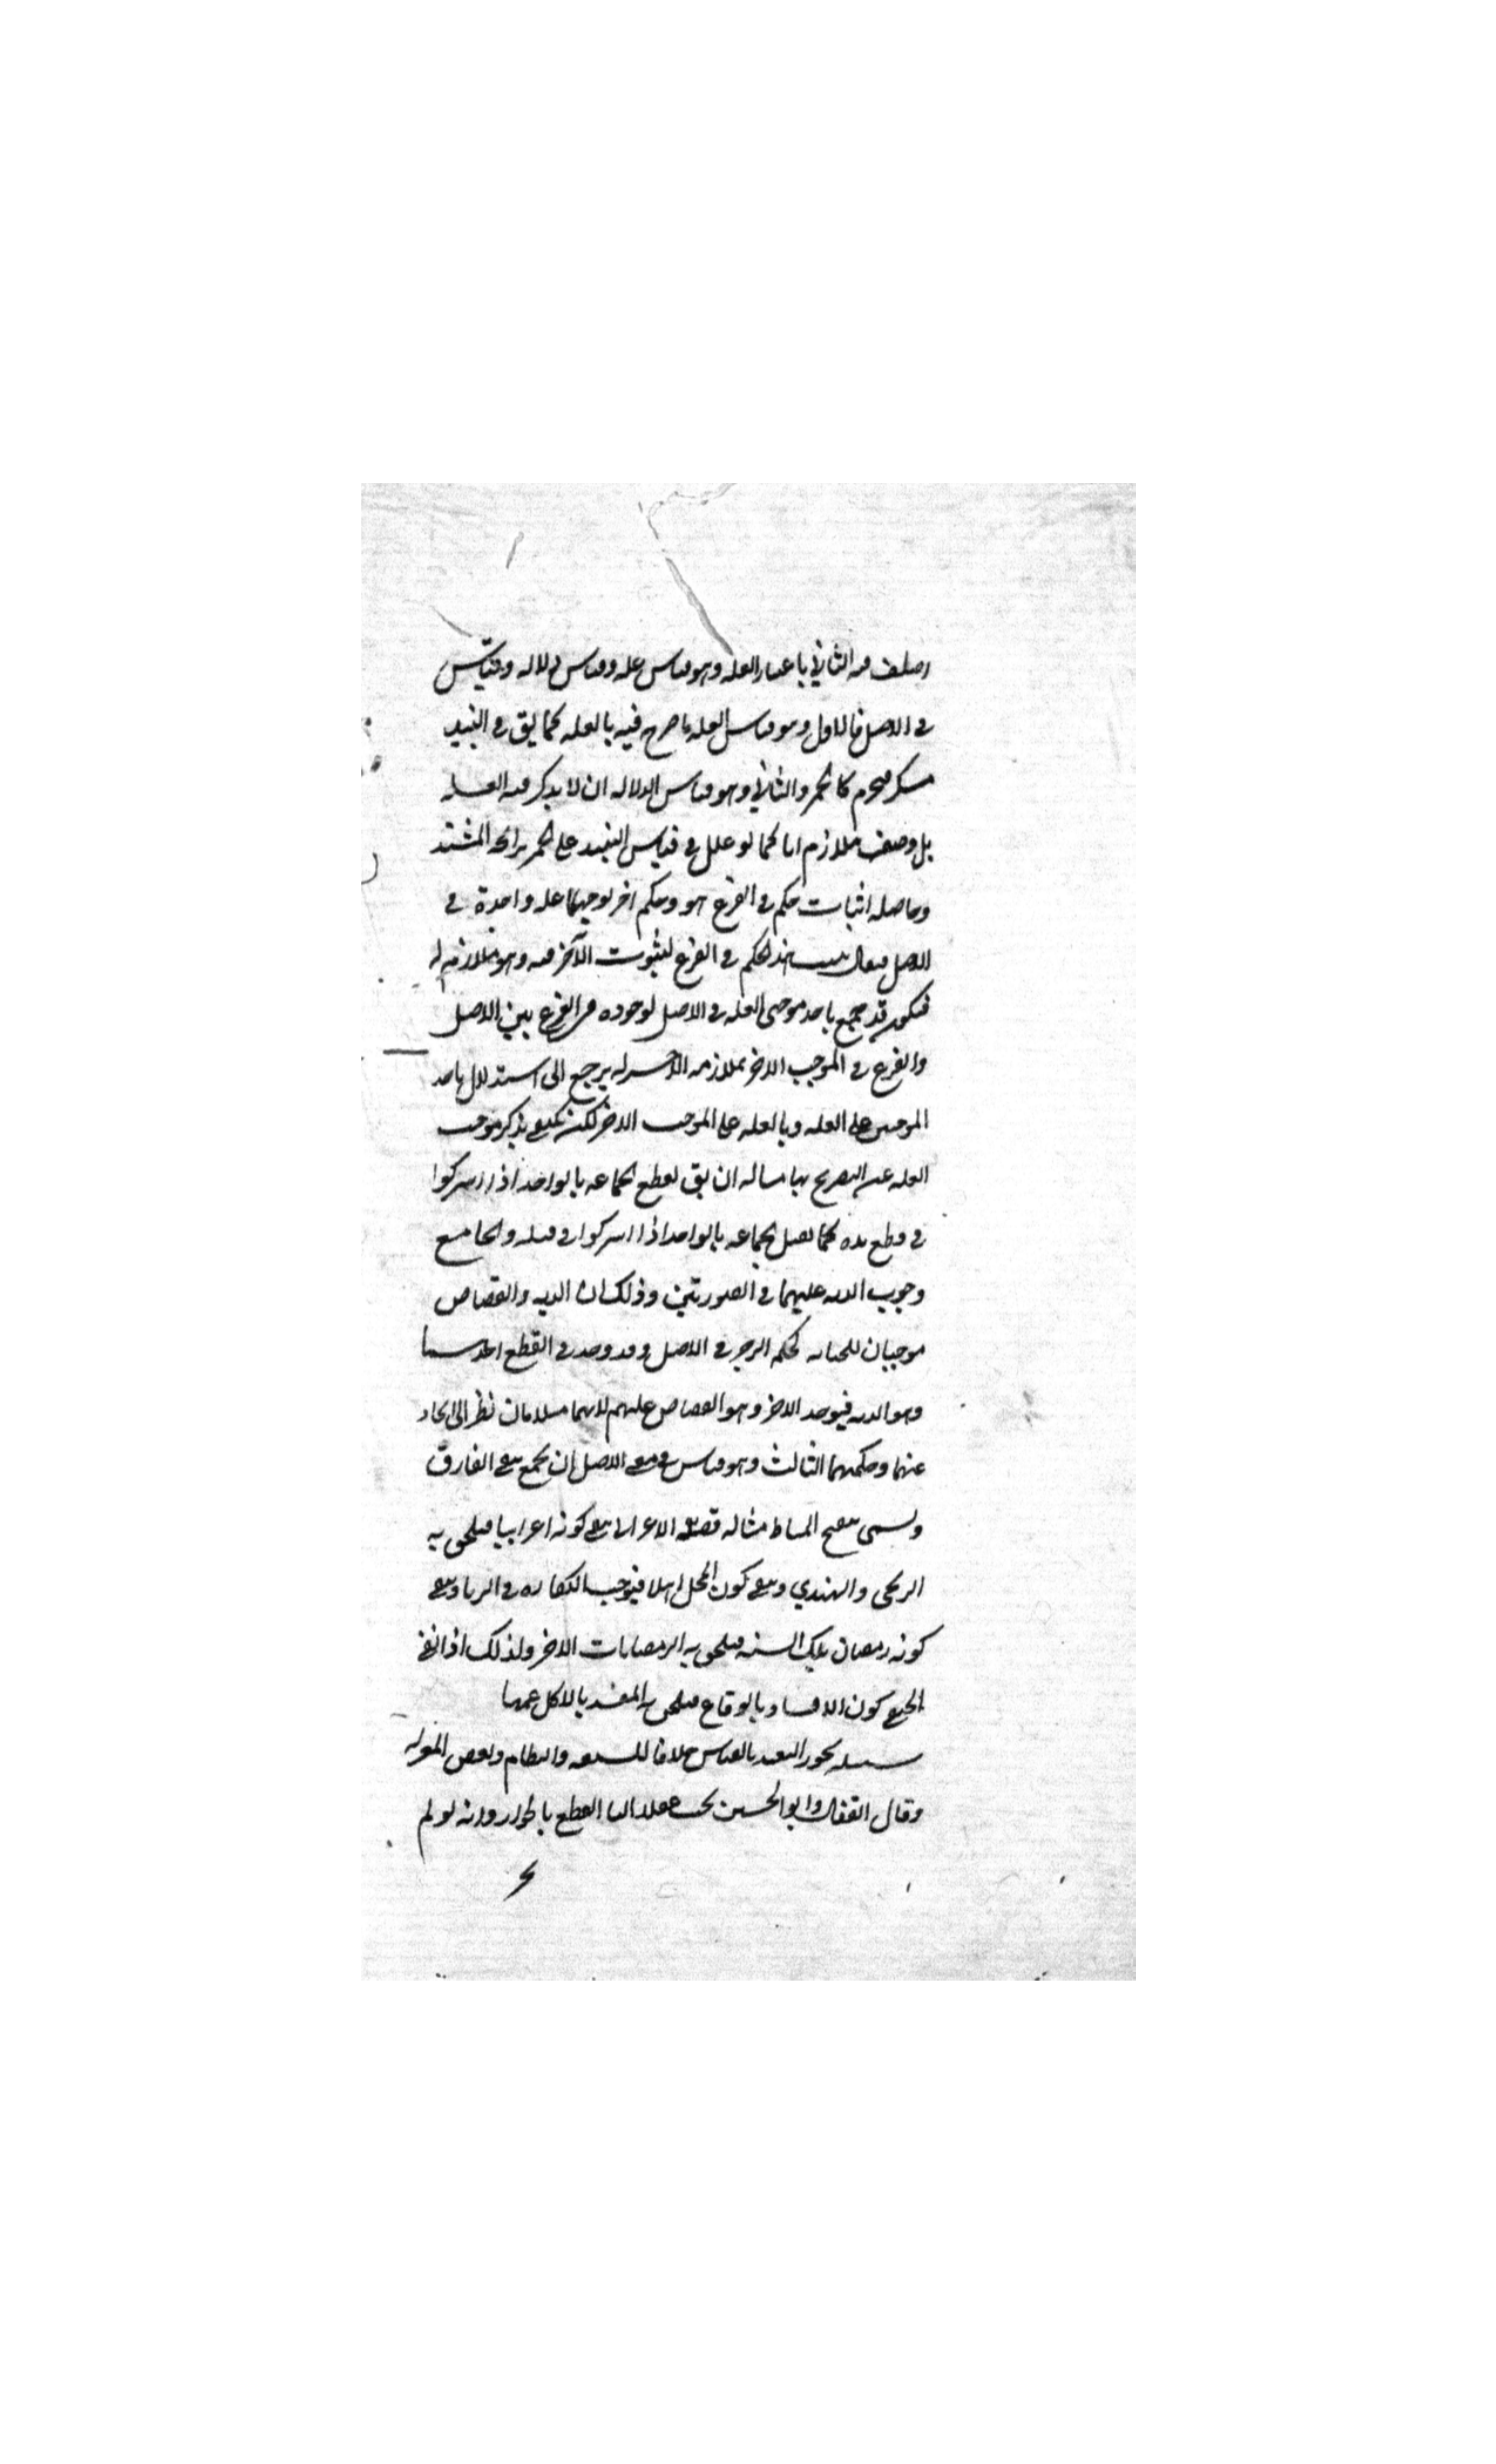 اختلف فيه الثاني باعتبار العله وهو قياس عله وقياس دلاله وقياس
في الاصل فالاول وهو قياس العله ما صرح فيه بالعله كما يق في النبيذ
مسكر فحرم كالخمر والثاني وهو قياس الدلاله ان لا يذكر فيه العله
بل وصف ملازم لها كما لو علل في قياس النبيذ على الخمر برائحه المشتد
وحاصله اثبات حكم في الفرع هو وحكم اخر توجبهما عله واحدة في
الاصل فيقال ثبت هذا الحكم في الفرع لثبوت الآخر فيه وهو ملازم له
فيكون قد جمع باحد موجبي العله في الاصل لوجوده في الفرع بين الاصل
والفرع في الموجب الاخر لملازمه الاخر له يرجع الى استدلال باحد
الموجبين على العله وبالعله على الموجب الاخر لكن يكتفي بذكر موجب
العله عن التصريح بها مثاله ان يق تقطع الجماعه بالواحد اذا اشتركوا
في قطع يده كما تقتل الجماعه بالواحد اذا اشتركوا في قتله والجامع
وجوب الديه عليهما في الصورتين وذلك ان الديه والقصاص
موجبان للجنايه لحكمه الزجر في الاصل وقد وجد في القطع احدهما
وهو الديه فيوجد الاخر وهو القصاص عليهم لانهما متلازمان نظرا الى اتحاد
علتهما وحكمتهما الثالث وهو قياس في معنى الاصل ان يجمع بنفي الفارق
ويسمى تنقيح المناط مثاله قصه الاعرابي بنفي كونه اعرابيا فيلحق به
الزنجي والهندي وبنفي كون المحل اهلا فيوجب الكفاره في الزنا وبنفي
كونه رمضان تلك السنه فيلحق به الرمضانات الاخر ولذلك اذا نفى
الحنفي كون الافساد بالوقاع فيلحق به المفسد بالاكل عمدا
مسئله يجوز التعبد بالقياس خلافا للشيعه والنظام وبعض المعتزله
وقال القفال وابو الحسين يجب عقلا لنا القطع بالجواز وانه لو لم